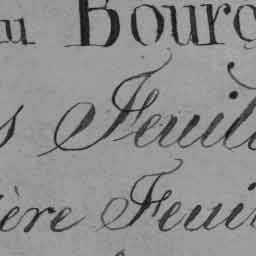 au Bourg
s Feuill
ière Feuil